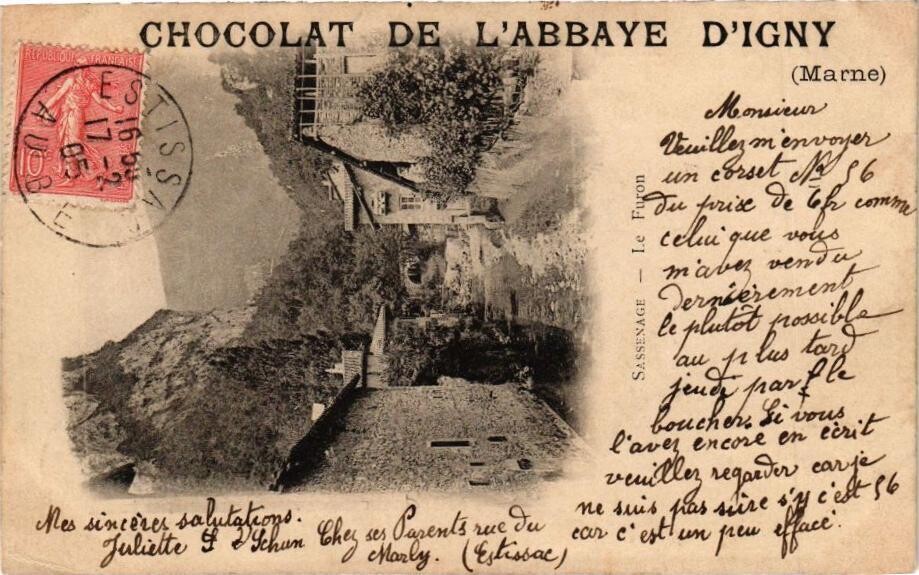 CHOCOLAT DE L'ABBAYE D'IGNY
(Marne)
RÉPUBLIQUE FRANÇAISE
10c
ESTISSAC
16
17-2
05
AUBE
SASSENAGE — Le Furon
Monsieur
Veuillez m'envoyer
un corset No 56
du prix de 6fr comme
celui que vous
m'avez vendu
dernièrement
le plutôt possible
au plus tard
jeudi par le
boucher. Si vous
l'avez encore en écrit
veuillez regarder car je
ne suis pas sûre s'y c'est 56
car c'est un peu effacé.
Mes sincères salutations.
Juliette Chez ses Parents rue du
Marly. (Estissac)